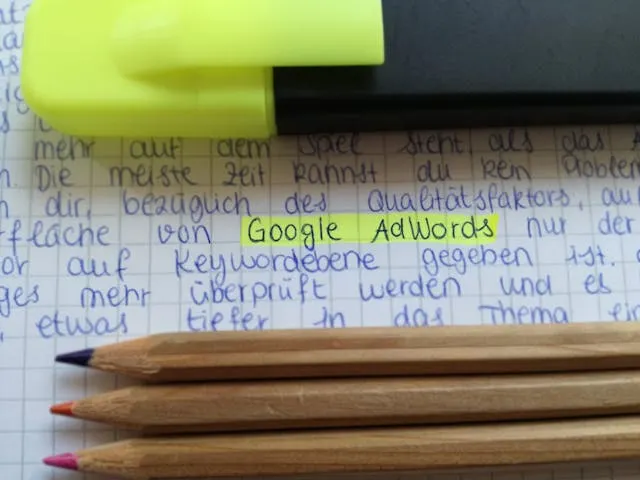 mehr auf dem Spiel steht als das
Die meiste Zeit kannst du kein Problem
dir, bezüglich des Qualitätsfaktors, au
fläche von Google AdWords nur der
or auf Keywordebene gegeben ist.
ges mehr überprüft werden und es
etwas tiefer in das Thema ein